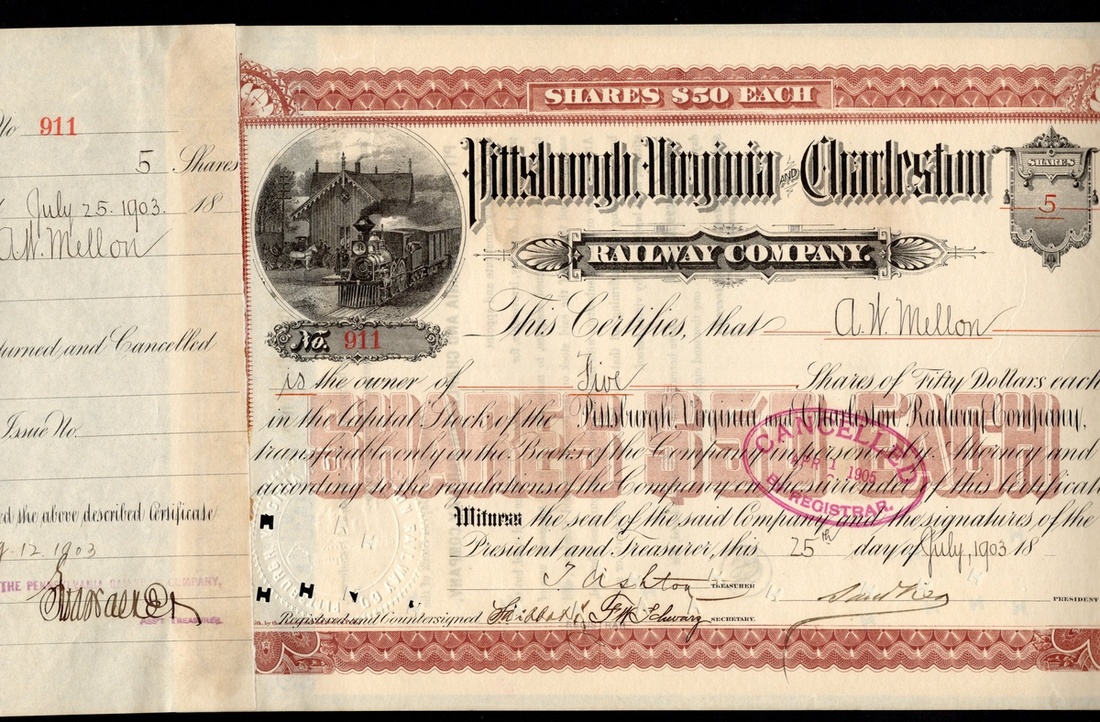 No 911
5 Shares
July 25. 1903. 18
A.W. Mellon
turned and Cancelled
Issue No.
ed the above described Certificate
12. 1903
THE PENNSYLVANIA COMPANY,
ASS'T TREASURER.
SHARES $50 EACH
Pittsburgh, Virginia AND Charleston
RAILWAY COMPANY.
SHARES
5
No. 911
This Certifies, that A.W. Mellon
is the owner of Five Shares of Fifty Dollars each
in the Capital Stock of the Pittsburgh, Virginia and Charleston Railway Company,
transferable only on the Books of the Company in person or by Attorney and
according to the regulations of the Company on the surrender of this Certificate
SHARES $50 EACH
CANCELLED
APR 1 1905
BY REGISTRAR.
Witness the seal of the said Company and the signatures of the
President and Treasurer, this 25th day of July, 1903 18
T Ashton TREASURER
PRESIDENT
Registered and Countersigned SECRETARY.